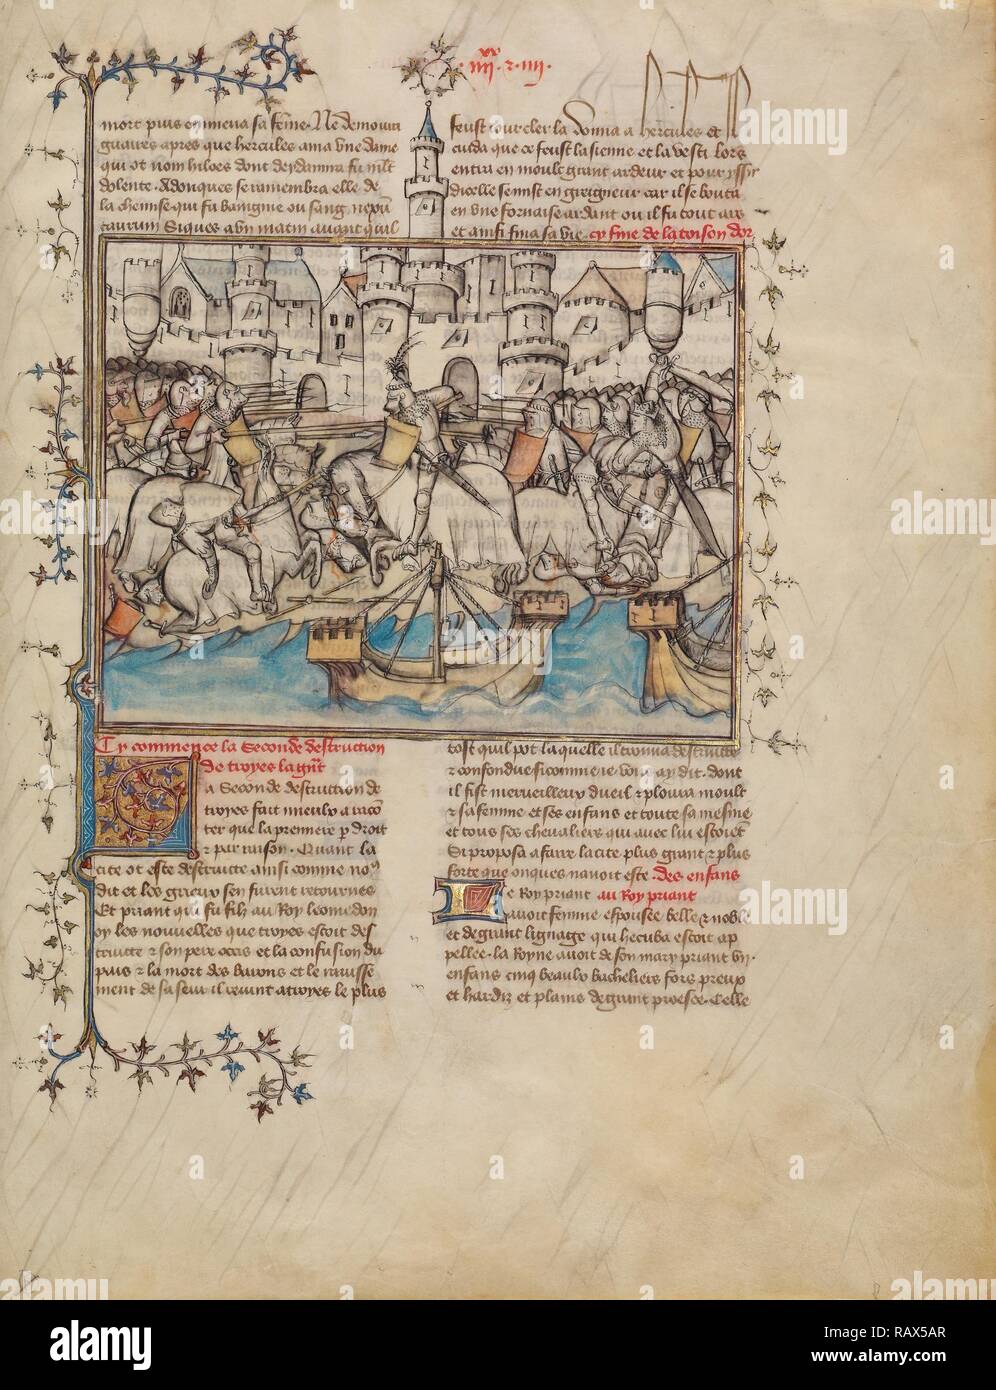 xx
iiii · z · iiii ·
mort puis enmena sa feme. Ne demoura
gaires apres que hercules ama vne dame
qui ot nom hiloes dont deydamia fu mlt
dolente. Adonques se ramembra elle de
la chemise qui fu baignie ou sang
taurum Si ques a vn matin auant quil
feust iour cler la donna a hercules et
cuida que ce feust la sienne et la vesti. Lors
entra en moult grant ardeur et pour yssir
dicelle se mist en greigneur car il se bouta
en vne fornaise ardant ou il fu tout ars
et ainsi fina sa vie. cy fine de la toison dor
Cy commence la seconde destruction
de troyes la grt
La seconde destruction de
troyes fait mieulx a racon
ter que la premiere p droit
z par raison. Quant la
cite ot este destruicte ainsi comme nous
dit et les grieux sen furent retournes
Et priant qui fu filz au Roy leomedon
oy les nouuelles que troyes estoit des
truicte z son pere occis et la confusion du
pais z la mort des barons et le rauisse
ment de sa seur il reuint a troyes le plus
tost quil pot laquelle il trouua destruicte
z confondue si comme ie vous ay dit. dont
il fist merueilleux dueil z ploura moult
z sa femme et ses enfans et toute sa mesnie
et tous ses cheualiers qui auec lui estoiet
Si proposa a faire la cite plus grant z plus
forte que onques nauoit este. Des enfans
Le Roy priant au Roy priant
auoit femme espousee belle z noble
et de grant lignage qui hecuba estoit ap
pellee. la Royne auoit de son mary priant vij.
enfans cinq beaulx bacheliers fors preux
et hardiz et plains de grant proesce. Celle
alamy
Image ID: RAX5AR
www.alamy.com